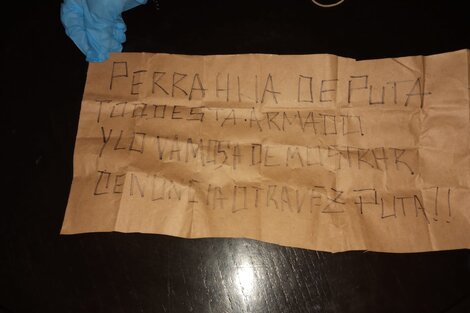 PERRA HIJA DE PUTA
TODO ESTA ARMADO
Y LO VAMOS A DEMOSTRAR
DENUNCIA OTRA VEZ PUTA!!